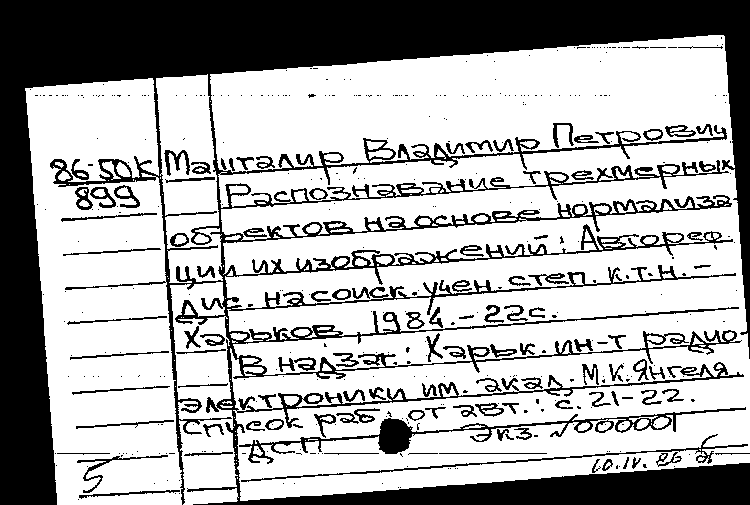 86-50К Машталир, Владимир Петрович
899 Распознавание трехмерных
объектов на основе нормализа-
ции их изображений: Автореф.
дис. на соиск. учен. степ. к.т.н. -
Харьков, 1984. - 22с.
В надзаг.: Харьк. ин-т радио-
электроники им. акад. М.К. Янгеля.
Список раб. от авт.: с. 21-22.
ДСП Экз. №000001
5 10.IV.86